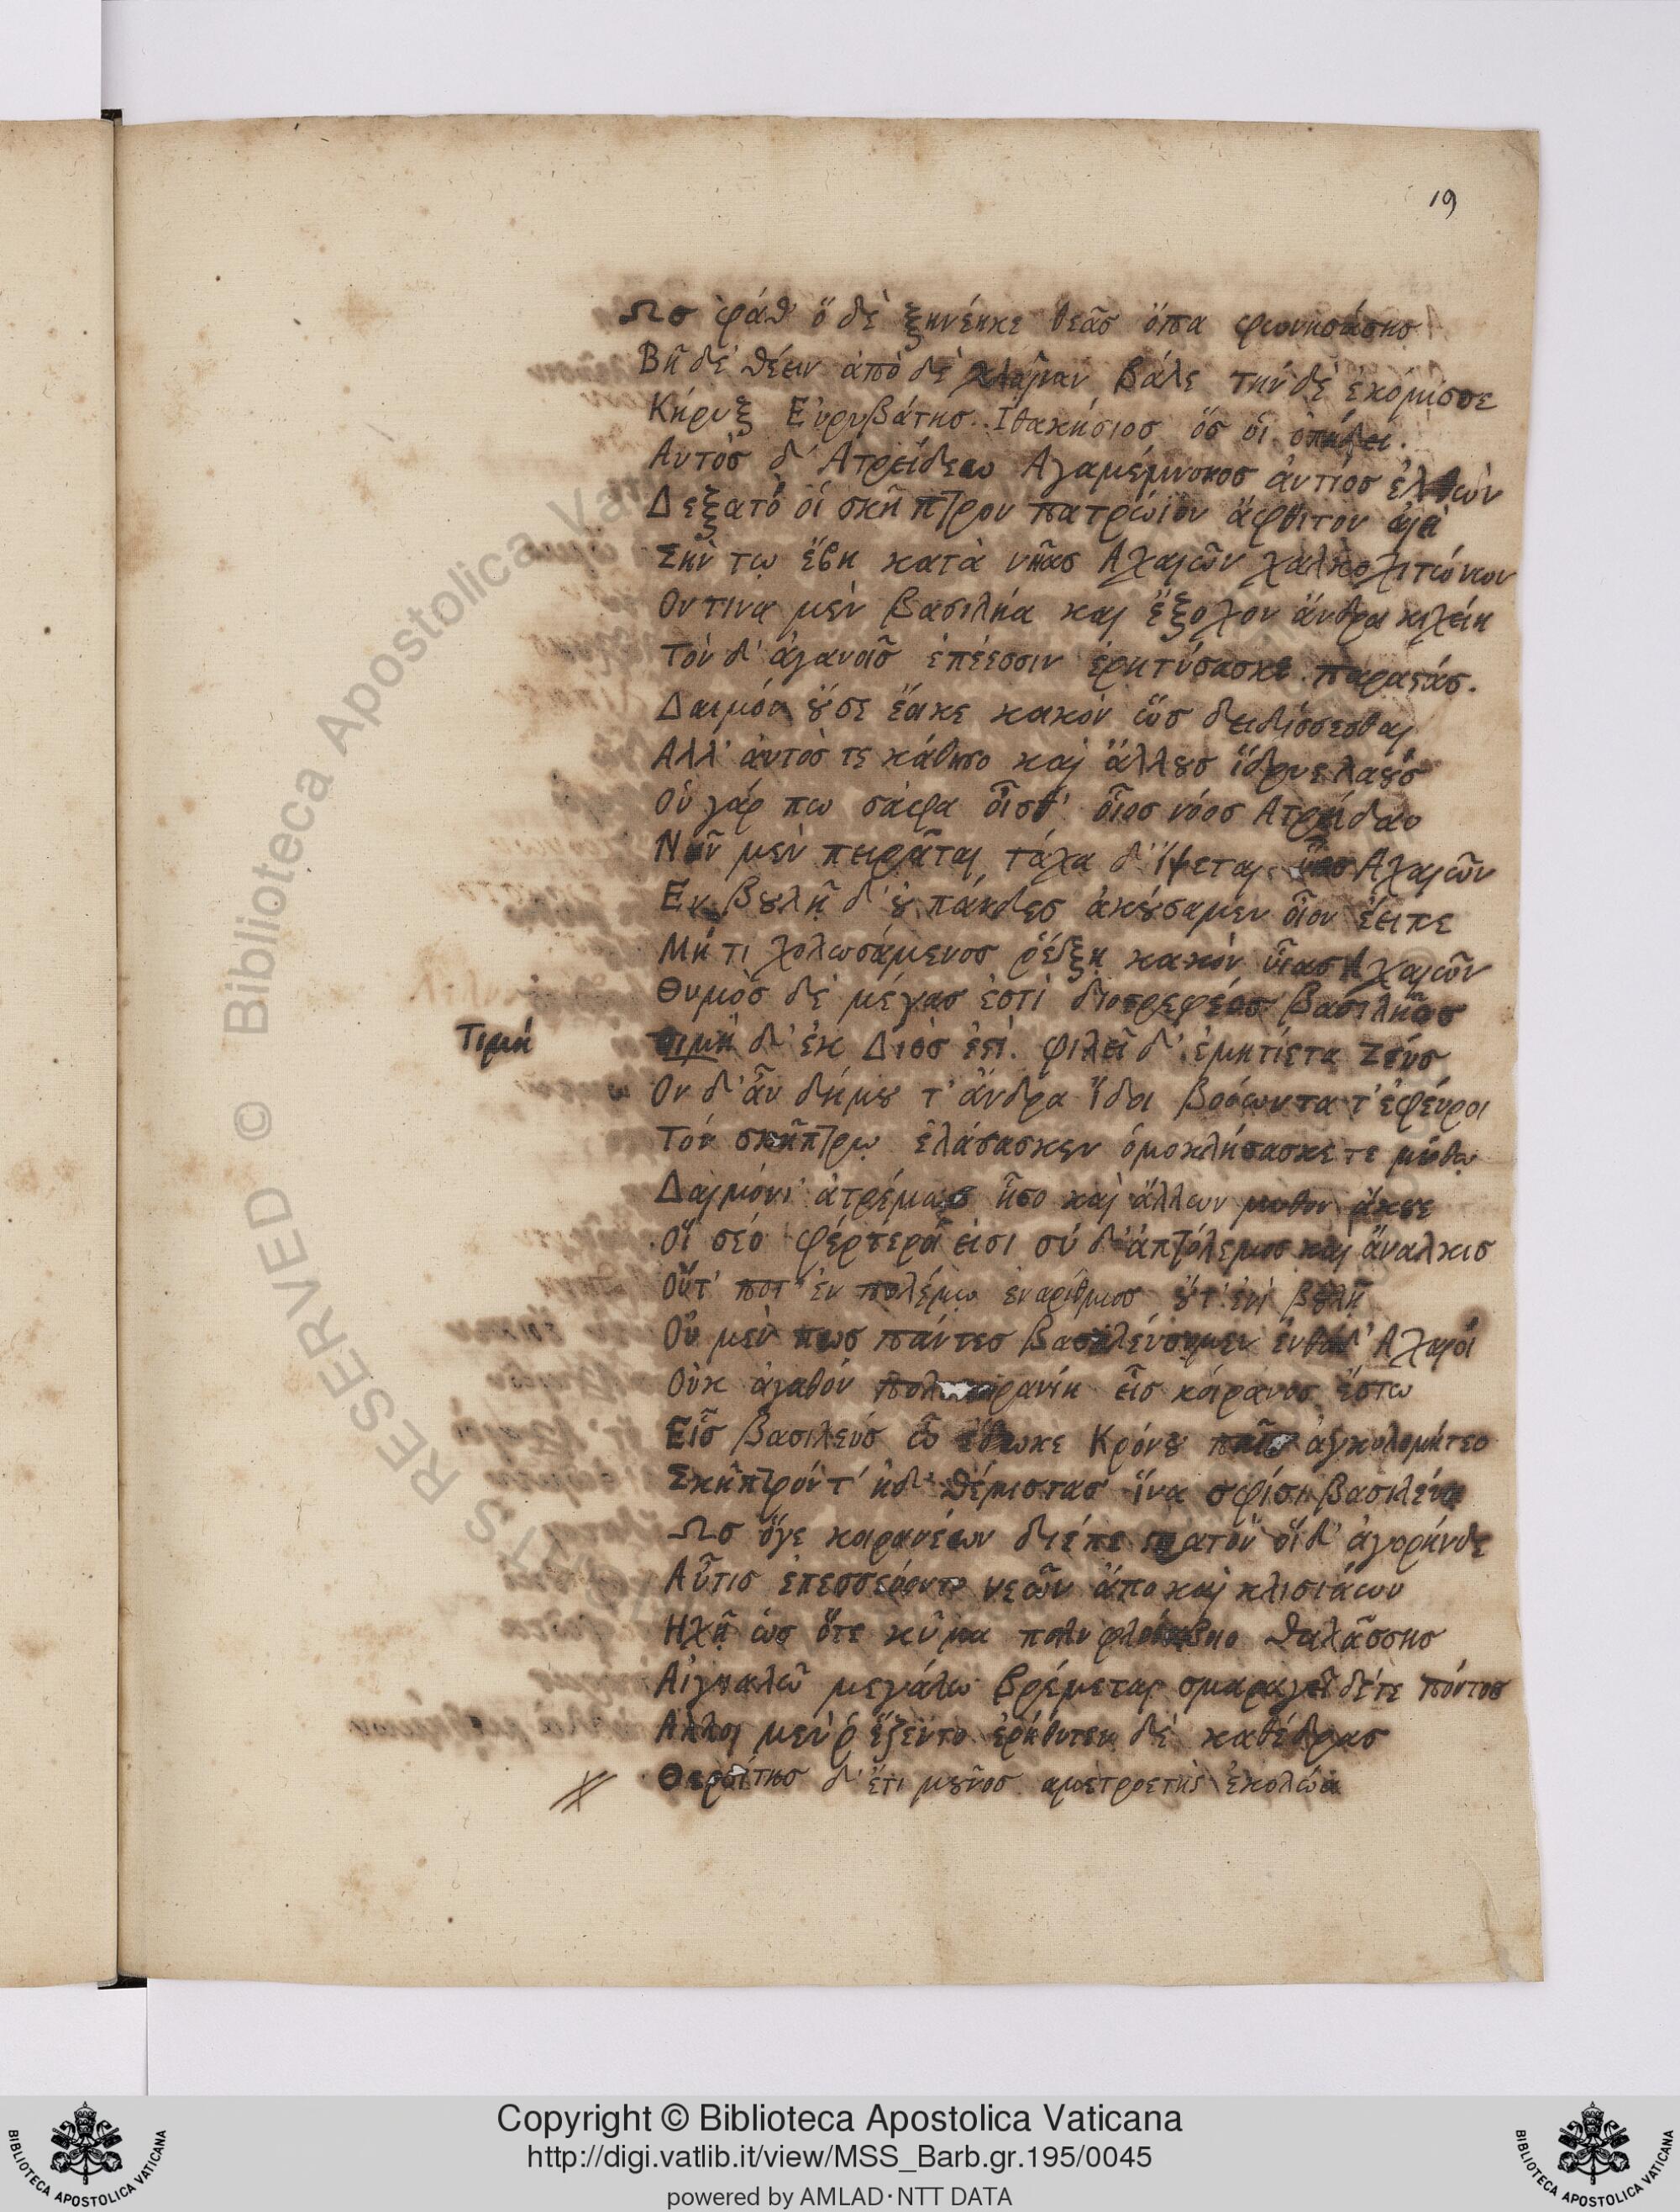 19
Ωσ φάθ' ὅ δὲ ξηνέηκε θεᾶσ ὄπα φωνησάσησ
Βῆ δὲ θέειν ἀπὸ δὲ χλαῖναν βάλε τὴν δὲ ἐκόμισσε
Κήρυξ Εὐρυβάτησ Ιθακήσιοσ ὅσ οἱ ὀπήδει.
Αυτὸσ δ' Ατρείδεω Αγαμέμνονοσ ἀντίοσ ἐλθὼν
Δεξατό οἱ σκῆπτρον πατρώϊον ἄφθιτον αἰεὶ
Σὴν τῳ ἔβη κατὰ νῆασ Αχαιῶν χαλκοχιτώνων
Ον τινα μὲν βασιλῆα και ἔξοχον ἄνδρα κιχείη
Τὸν δ' ἀγανοῖσ ἐπέεσσιν ἐρητύσασκε παραστάσ.
Δαιμόνι ὄυ σε ἔοικε κακὸν ὥσ δειδίσσεσθαι
Αλλ' ἀυτὸσ τε κάθησο καὶ ἄλλουσ ἵδρυε λαούσ
Οὐ γάρ πω σάφα οἶσθ' οἷοσ νόοσ Ατρείδαο
Νῦν μὲν πειρᾶται τάχα δ' ἴψεται υἷασ Αχαιῶν
Εν βουλῇ δ' ὀυ πάντεσ ἀκούσαμεν οἷον ἔειπε
Μή τι χολωσάμενοσ ῥέξῃ κακὸν υἷασ Αχαιῶν
Θυμὸσ δὲ μέγασ ἐστὶ διοτρεφέοσ βασιλῆοσ
Τιμή τιμὴ δ' ἐκ Διὸσ ἐστί. φιλεῖ δ' ἑ μητίετα Ζεύσ
Ον δ' ἂν δήμου τ' ἄνδρα ἴδοι βοόωντα τ' ἐφεύροι
Τόν σκῆπτρῳ ἐλάσασκεν ὁμοκλήσασκε τε μύθῳ
Δαιμόνι' ἀτρέμασ ἧσο καὶ ἄλλων μυθον ἄκουε
Οἵ σέο φέρτεροί εἰσι σύ δ' ἀπτόλεμοσ καὶ ἄναλκισ
Οὔτ' ποτ' ἐν πολέμῳ ἐναρίθμιοσ οὔτ' ἐνὶ βουλῇ
Οὐ μέν πωσ πάντεσ βασιλέυσομεν ἐνθάδ' Αχαιοὶ
Οὐκ ἀγαθόν πολυκοιρανίη εἷσ κόιρανοσ ἔστω
Εἷσ βασιλεύσ ᾧ ἔδωκε Κρόνου παῖσ ἀγκυλομήτεο
Σκῆπτρόν τ' ἠδ' θέμιστασ ἵνα σφίσι βασιλεύῃ
Ωσ ὅγε κοιρανέων δίεπε στρατὸν ὅι δ' ἀγορήνδε
Αὖτισ ἐπεσσεύοντο νεῶν ἄπο καὶ κλισιάων
Ηχῇ ὡσ ὅτε κῦμα πολυφλοίσβοιο θαλᾶσσησ
Αἰγιαλῶ μεγάλω βρέμεται σμαραγεῖ δέ τε πόντοσ
Αλλοι μέν ῥ' ἕζεντο ἐρήθυτεν δὲ καθέδρασ
Θερσίτησ δ' ἔτι μοῦνοσ αμετροεπὴσ ἐκολώα
© Biblioteca Apostolica Vaticana
Copyright © Biblioteca Apostolica Vaticana
http://digi.vatlib.it/view/MSS_Barb.gr.195/0045
powered by AMLAD·NTT DATA
BIBLIOTECA APOSTOLICA VATICANA
BIBLIOTECA APOSTOLICA VATICANA